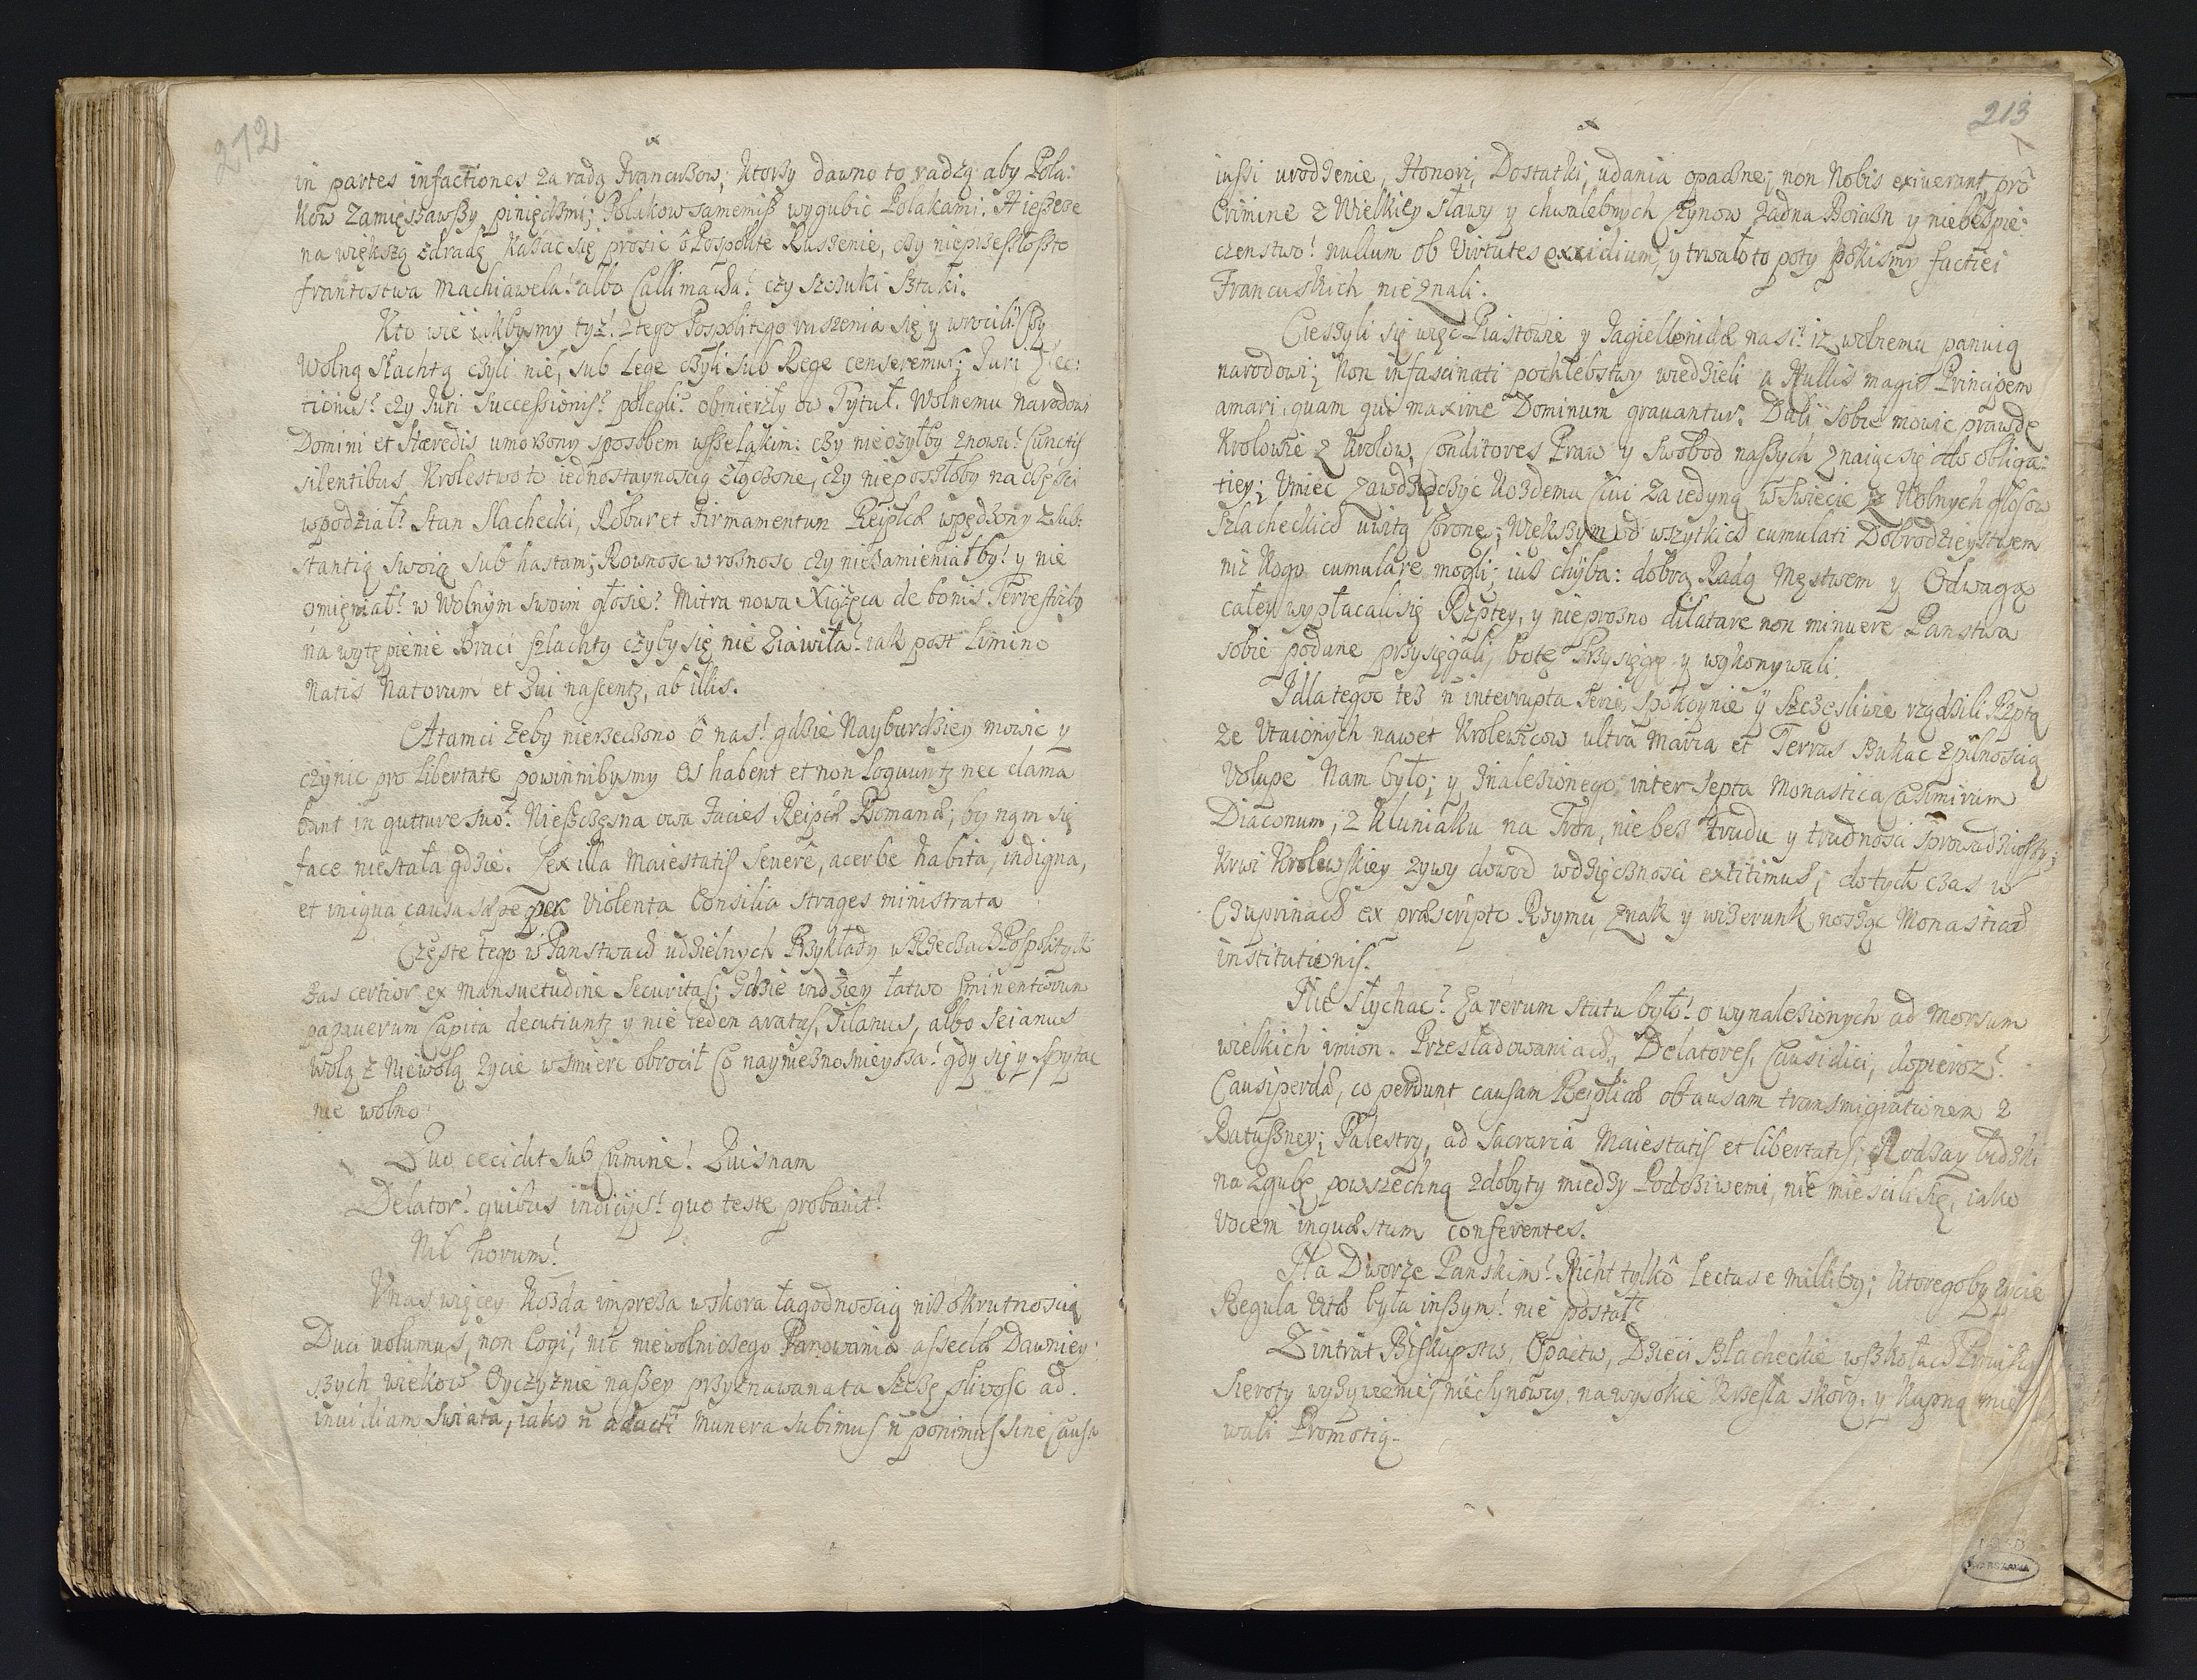 212
in partes infactiones za radą Francuzow; ktorzy dawno to radzą aby Pola:
kow zamięszawszy piniędzmi; Polakow samemiß wygubic Polakami. A ieszcze
na większą zdradę kazac się prosic ô Pospolite Ruszenie, czy
frantostwa Machiawela! albo Callimacha! czy szczuki sztuki.
Kto wie iakbysmy tyż! z tego Pospolitego ruszenia się y wrocili!
Wolną Slachtą czyli nie, sub Lege czyli sub Rege censeremur; Juri Elec:
tionis? czy Juri Successionis? polegli? obmierzły ow Tytuł. Wolnemu Narodowi
Domini et Hæredis umorzony sposobem wszelakim: czy nieożyłby znowu! Cunctis
silentibus Krolestwo to iednostaynoscią złączone, czy nieposzłoby na częsci
wpodział! Stan Slachecki, Robur et Firmamentum Reiplcæ wpędzony z sub:
stantią swoią sub hastam; Rownosc w roznosc czy niezamieniałby! y nie
oniemiał! w Wolnym swoim głosie? Mitra nowa Xiążęca de bonis Terrestribus
na wytępienie Braci szlachty czyby się nie ziawiła! iak post limino
Natis Natorum et Qui nascentz, ab illis.
Atamci żeby nierzeczono ô nas! gdzie Nayburdziey mowic y
czynic pro Libertate powinnibysmy Os habent et non loquuntz nec clama
bunt in gutture suo? Nieszczęsna owa Facies Reipcæ Romanæ; by nam się
face niestała gdzie. Lex illa Maiestatis severè, acerbe habita, indigna,
et iniqua causa sæpe Violenta Consilia strages ministrata
Częste tego w Panstwach udzielnych Przykłady w Rzeczach Pospolitych
zas certior ex mansuetudine Securitas; Gdzie indziey łatwo Eminentiorum
papauerum Capita decutiuntz y nie ieden Silanus, albo Seianus
wolą z niewolą życie w smierc obrocił Co nayniesznosnieysza! gdy się y spytac
nie wolno
Quo cecidit sub Crimine! Quisnam
Delator? quibus indicijs! quo teste probauit?
Nil horum?
Unas więcey kozda impreza wskora łagodnoscią niż okrutnoscią
Duci volumus, non Cogi, nic niewolniczego Panowania assecla Dawniey:
szych wiekow Oyczyznie naszey przyznawana ta szczęsliwosc ad
inuidiam swiata, iako munera subimus ponimus sine Causa
213
iussi urodzenie, Honori, Dostatki, udania opaczne; non Nobis exiuerunt pro
Crimine z Wielkiey sławy y chwalebnych czynow żadna Boiazn y niebespie:
czenstwo! nullum ob Virtutes exidium, y trwało to poty pokismy factiei
Francuskich nie znali.
Cieszyli się więc Piastowie y Jagiellonidæ nasi! iż wolnemu panuią
narodowi; Non infascinati pochlebstwy wiedzieli a Nullis magis Principem
amari, quam qui maxime Dominum grauantur. Dali sobie mowic prawdę
Krolowie z Krolow, Conditores Praw y Swobod naszych znaiąc się do obliga:
tiey; Umiec zawdzięczyc kozdemu Ciui za iedyną w swiecie z Wolnych głosow
szlacheckich uwitą Coronę; Większym od wszytkich cumulati Dobrodzieystwem
niż kogo cumulare mogli; iuż chyba: dobrą Radą Męstwem y Odwagą
całey wypłacali się Rzptey, y nieprozno dilatare non minuere Panstwa
sobie podane przysięgali, bo tę Przysięgę y wykonywali.
I dla tegoc tez interrupta serie spokoynie y szczęsliwie rządzili Rzptą
że Utaionych nawet Krolewicow ultra maria et Terras szukac z pilnoscią
Volupe Nam było; y znalezionego inter septa Monastica Casimirum
Diaconum, z Kluniaku na Tron, nie bez trudu y trudnosci sprowadziwszy;
krwi Krolewskiey żywy dowod wdzięcznosci extitimus; do tych czas w
Czuprinach ex præscripto Rzymu, znak y wizerunk nosząc Monasticæ
institutionis.
Nic słychac? Za rerum statu było! o wynalezionych ad morsum
wielkich imion. Przesladowaniach, Delatores, Causidici, dopieroz?
Causiperdæ, co perdunt causam Reiplicæ ob ausam transmigrationem z
Ratuszney; Palestry, ad sacraria Maiestatis et libertatis; Rodzay ludzki
na zgubę powszechną zdobyty miedzy Podcziwemi, nie miescili się, iako
vocem inquæstum conferentes.
Na Dworze Panskim! Nicht tylko Lectus e millibus; ktoregoby życie
Regula vitæ była inszym! nie postał?
Z intrat Biskupstw, Opactw, Dzieci Slacheckie w szkołach
Sieroty wyżywienie, na wysokie Krzesła skorą, y kupną mie
wali Promotią.
WARSZAWA